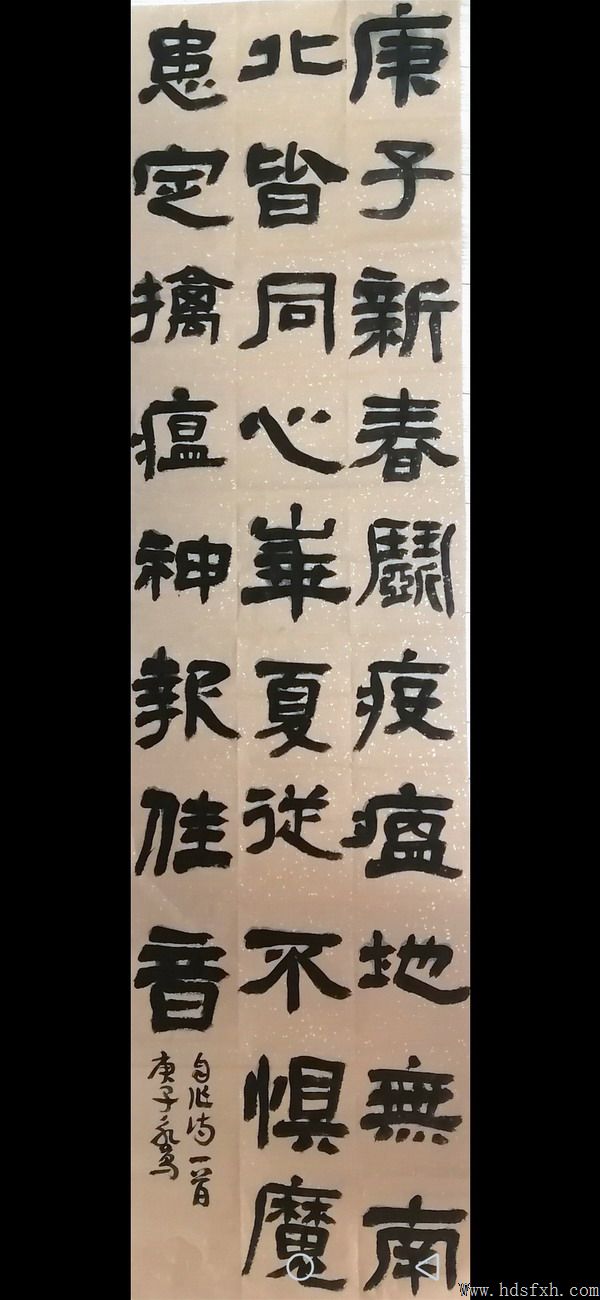 庚子新春鬬疫瘟地無南
北皆同心華夏從不懼魔
患定擒瘟神報佳音
自作诗一首
庚子
Www.hdsfxh.com